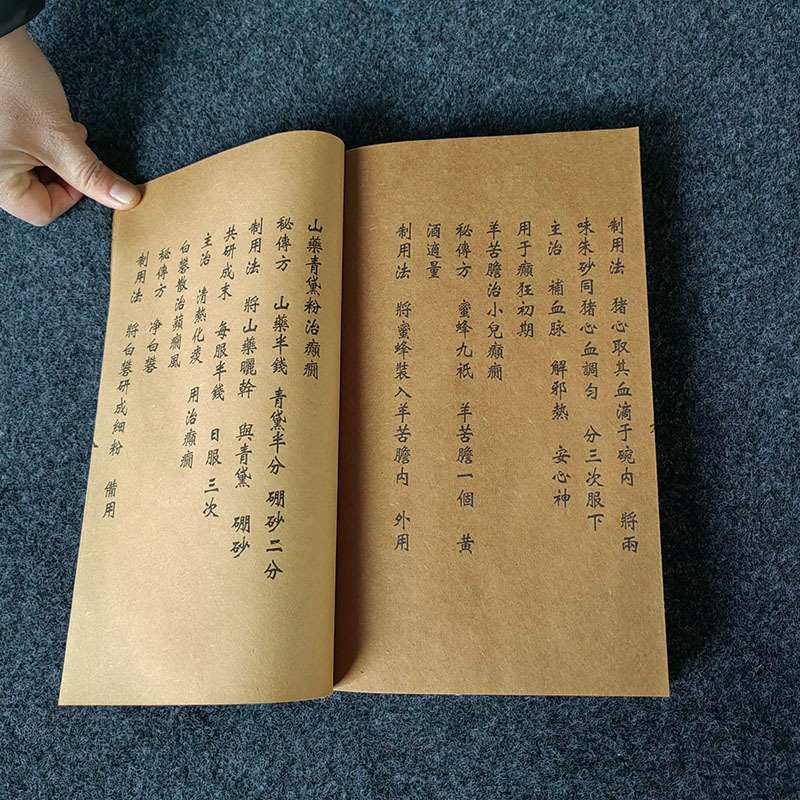 制用法 猪心取其血滴于碗内 將兩
味朱砂同猪心血調匀 分三次服下
主治 補血脉 解邪熱 安心神
用于癲狂初期
羊苦膽治小兒癲癇
秘傳方 蜜蜂九祇 羊苦膽一個 黄
酒適量
制用法 將蜜蜂裝入羊苦膽内 外用
山藥青黛粉治癲癇
秘傳方 山藥半錢 青黛半分 硼砂二分
制用法 將山藥曬幹 與青黛 硼砂
共研成末 每服半錢 日服三次
主治 清熱化痰 用治癲癇
白礬散治癲癇風
秘傳方 净白礬
制用法 將白礬研成細粉 備用